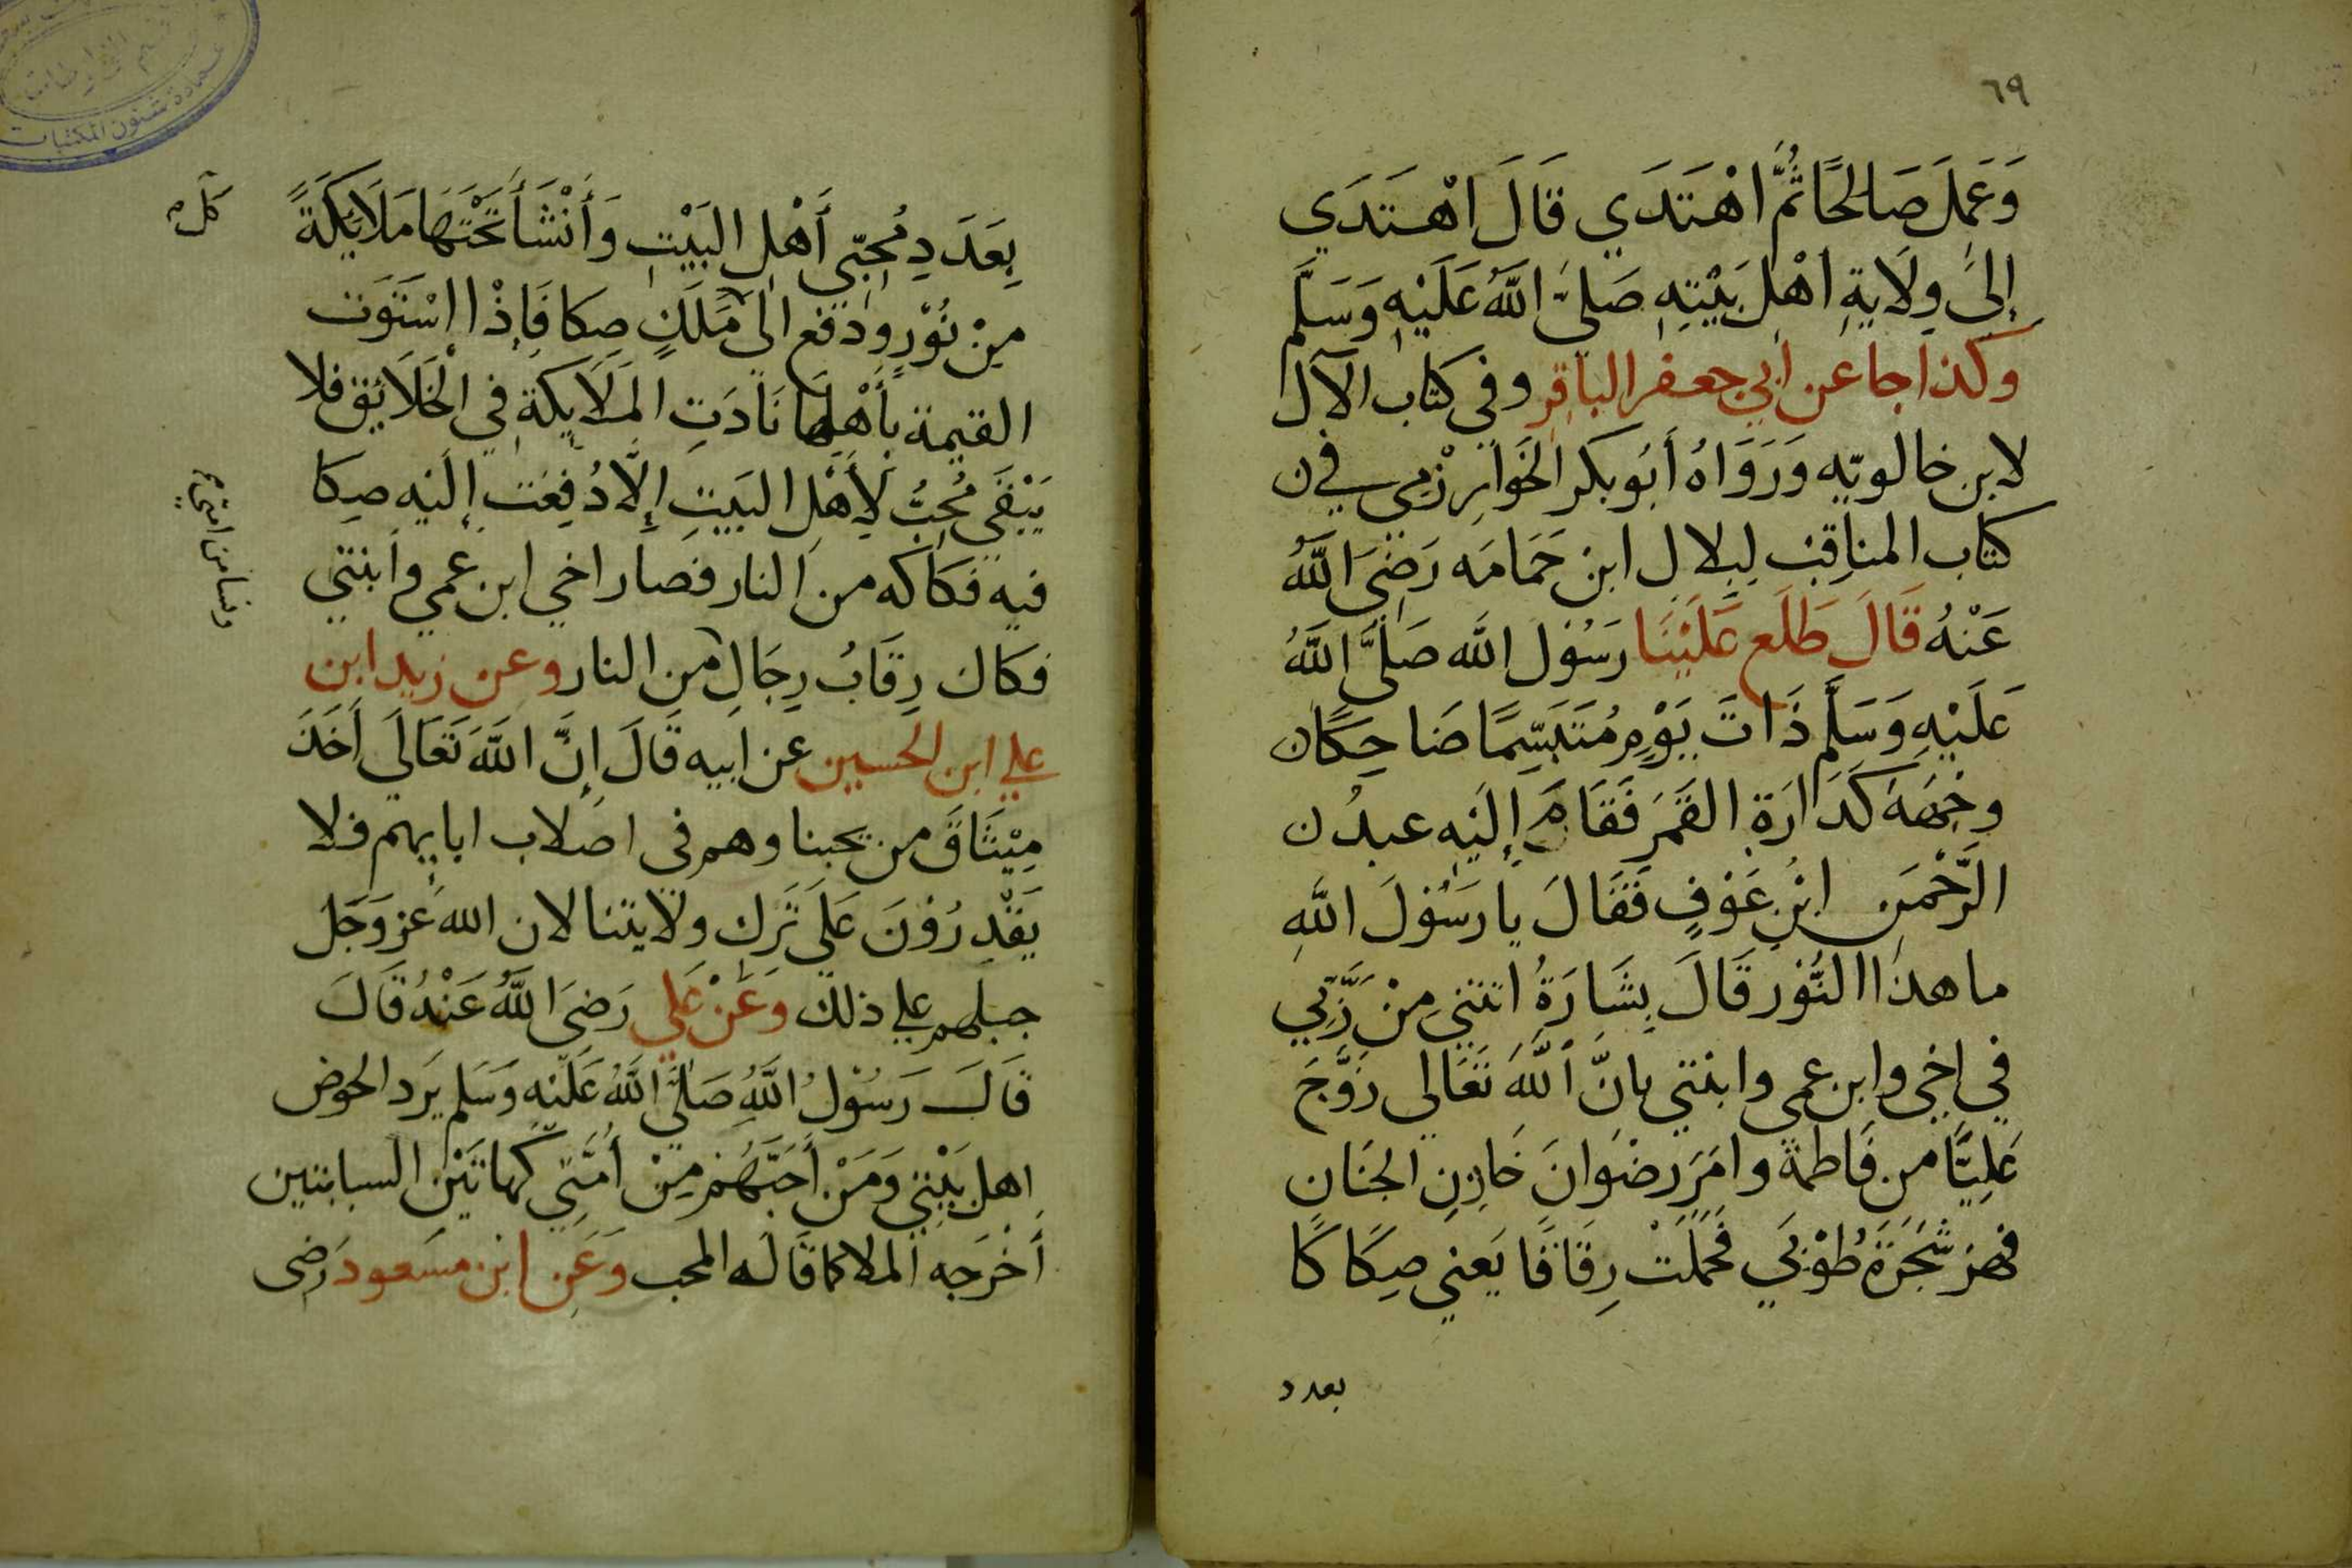 ٦٩
وَعَمِلَ صَالِحًا ثُمَّ اهْتَدَي قَالَ اهْتَدَي
إِلىَ وِلَايَةِ اهْلِ بَيْتِهِ صَلىَّ اللَّهُ عَلَيْهِ وَسَلَّم
وكذا جا عن ابي جعفر الباقر وفي كتاب الآل
لابن خالويّه وَرَوَاهُ أَبُو بكر الخَوَارِزْمِي في
كتاب المناقِب لِبِلال ابن حَمَامَه رَضِيَ اللَّهُ
عَنْهُ قَالَ طَلَع عَلَيْنَا رَسُوْل اللَّه صَلىَّ اللَّهُ
عَلَيْهِ وَسَلَّم ذَاتَ يَوْمٍ مُتَبَسِّمًا ضَاحِكًا
وجْهَهُ كَدَارَةِ القَمَرِ فَقَامَ إِلَيْهِ عبدُ
الرَّحْمَن ابْنِ عَوْفٍ فَقَالَ يا رَسُوْلَ اللَّهِ
ما هذا النُّوْر قَالَ بِشَارَةُ اتتني مِنْ رَّبِّي
في اخي وابن عمى وابنتي بانَّ اللَّهَ تَعَالى زَوَّجَ
عَلِيَّا من فَاطمة وامَرَ رضْوَانَ خَازِنِ الجَنَانِ
فهز شَجَرَةَ طُوْبَي فَحَمَلَتْ رِقَاقًا يَعني صِكَاكًا
بعدد
بِعَدَدِ مُحِبّي أَهْلِ البَيْتِ وَأَنْشَأَ تَحْتَهَا مَلَائِكَةً
مِنْ نُوْرٍ ودفع الى مَلَكٍ صِكا فَإِذْا اسْتَوَت
القيمة بأَهْلِهَا نَادَتِ المَلَايكَة في الخَلَائِق فلا
يَبْقَى مُحِبُّ لأَهْلِ البَيتِ إِلَّا دُفِعَت إليْه صِكا
فيه فكاكه من النار فصار اخي ابن عمي وابنتي
فكاك رِقَابُ رِجَالِ من النار وعن زيد ابن
علي ابن الحسين عن ابيه قَالَ إِنَّ اللَّهَ تَعَالَي أَخَذَ
مِيْثَاقَ من يحبنا وهم في اصْلاب ابايهم فلا
يَقْدِرُوْنَ عَلَي تَرك ولايتنا لان الله عز وَجَل
جبلهم علي ذلك وَعَنْ عَلي رَضِيَ اللَّهُ عَنْهُ قَالَ
قَالَ رَسُوْلُ اللَّهِ صَلىَّ اللَّهُ عَلَيْهِ وَسَلم يَرد الحوض
اهل بَيْتِي وَمَنْ أَحَبَّهُمْ مِنْ أُمَّتِي كهاتَيْنِ السبابتين
أَخْرَجه الملا كما قَالَه المحب وَعَنِ ابْنِ مسعود رَضى